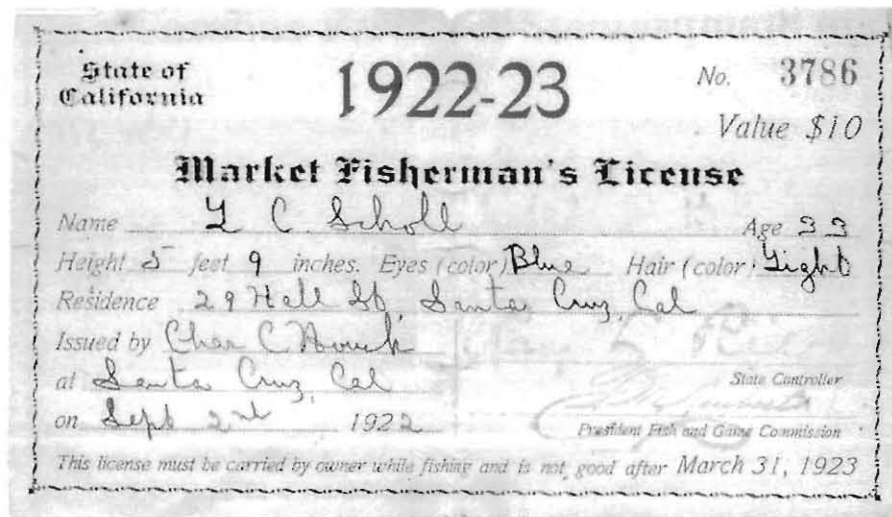 State of California
1922-23
No. 3786
Value $10
Market Fisherman's License
Name L C. Scholl Age 33
Height 5 feet 9 inches. Eyes (color) Blue Hair (color) Light
Residence 29 Hall St, Santa Cruz, Cal
Issued by Chas C
at Santa Cruz, Cal
State Controller
on Sept 2nd 1922
President Fish and Game Commission
This license must be carried by owner while fishing and is not good after March 31, 1923